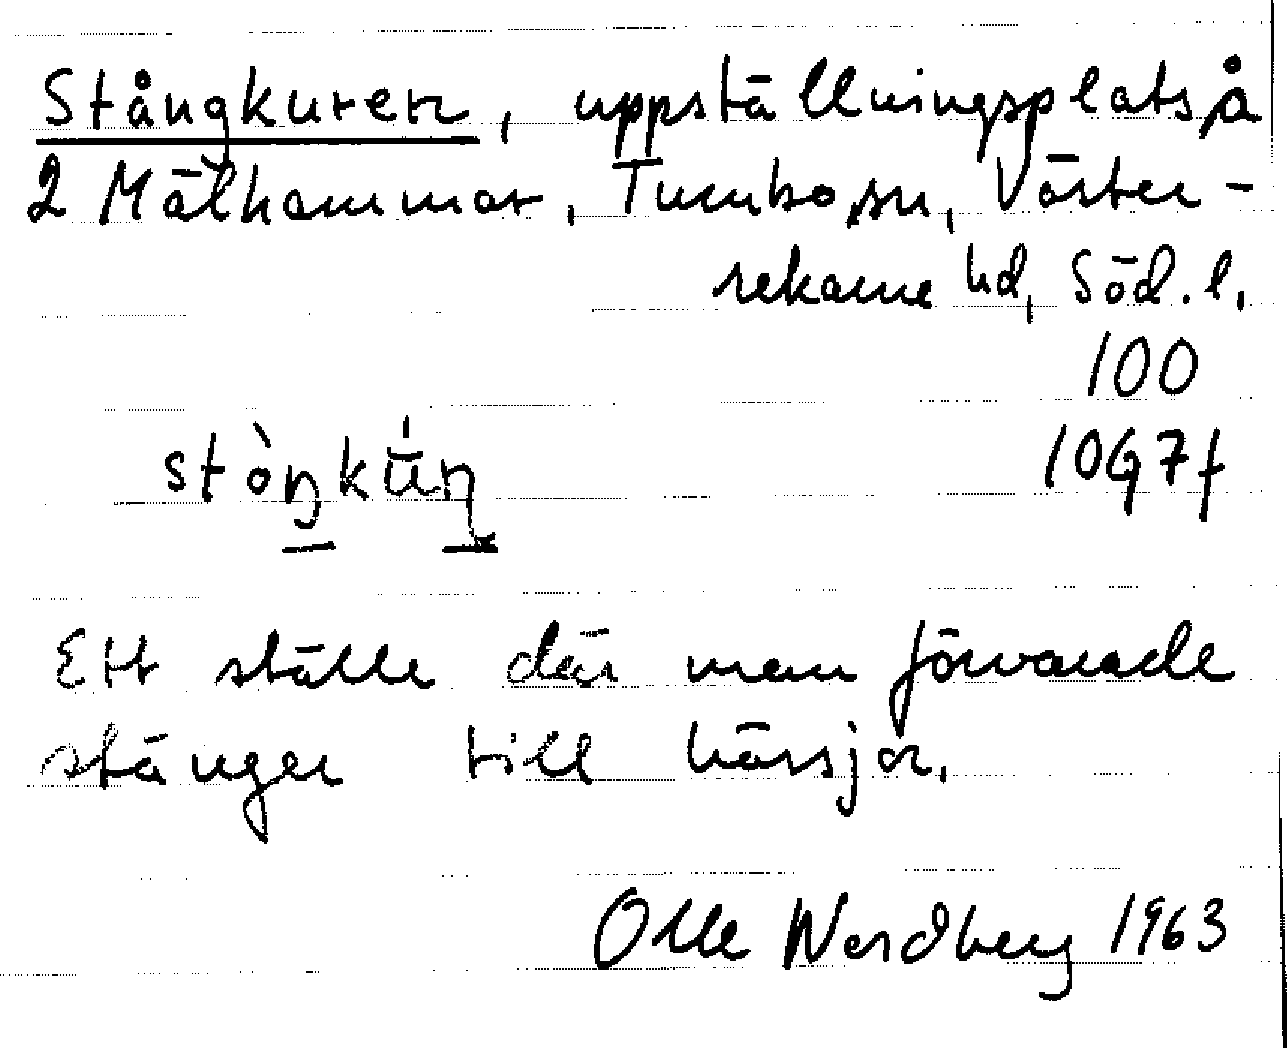 Stångkuren, uppställningsplats å
2 Mälhammar, Tumbo sn, Väster-
rekarne hd, Söd. l.
100
10G7f
stòŋkū́ṇ
Ett ställe där man förvarade
stänger till hässjor.
Olle Nordberg 1963